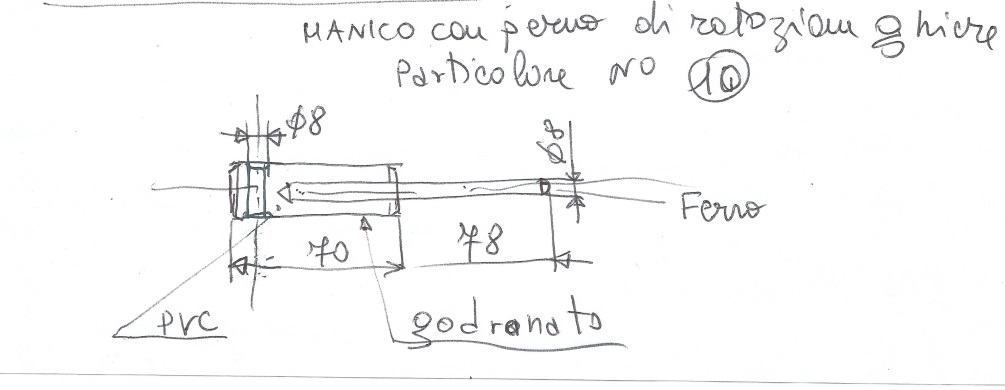 MANICO con perno di rotaziom ghiere
Particolare NO 10
φ8
φ8
Ferro
70
78
PVC
godronato